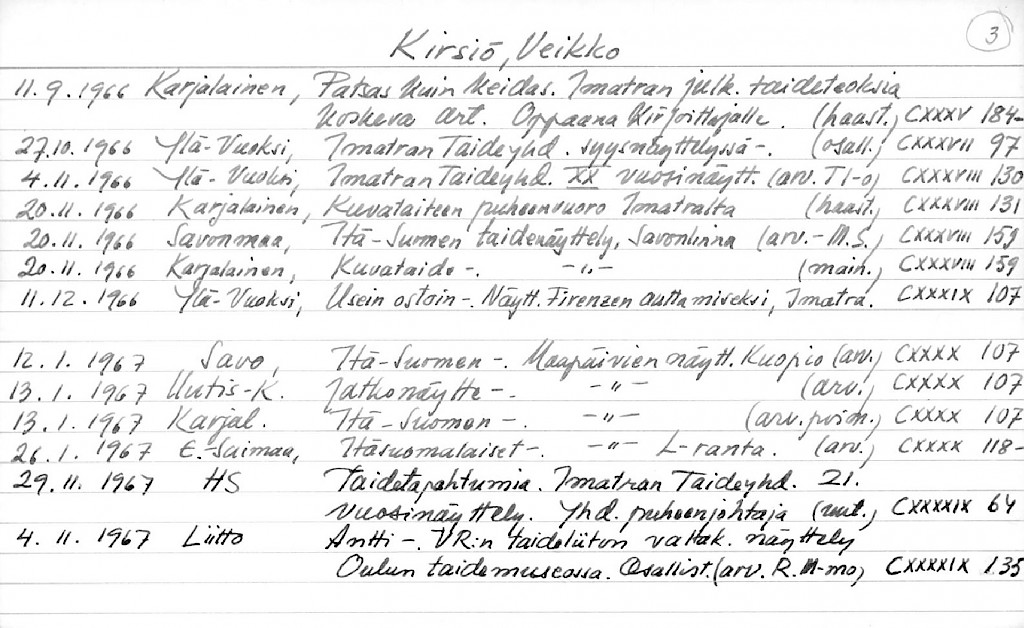 3
Kirsiö, Veikko
11.9.1966 Karjalainen, Patsas kuin keidas. Imatran julk. taideteoksia
koskeva art. Oppaana kirjoittajalle. (haast.) CXXXV 184-
27.10.1966 Ylä-Vuoksi, Imatran Taideyhd. syysnäyttelyssä-. (osall.) CXXXVII 97
4.11.1966 Ylä-Vuoksi, Imatran Taideyhd. XX vuosinäytt. (arv. T l-o) CXXXVIII 130
20.11.1966 Karjalainen, Kuvataiteen puheenvuoro Imatralta (haast.) CXXXVIII 131
20.11.1966 Savonmaa, Itä-Suomen taidenäyttely, Savonlinna (arv.- M.S.) CXXXVIII 159
20.11.1966 Karjalainen, Kuvataide-. -"- (main.) CXXXVIII 159
11.12.1966 Ylä-Vuoksi, Usein ostoin-. Näytt. Firenzen auttamiseksi, Imatra. CXXXIX 107
12.1.1967 Savo, Itä-Suomen-. Maapäivien näytt. Kuopio (arv.) CXXXX 107
13.1.1967 Uutis-K. Jatkonäytte-. -"- (arv.) CXXXX 107
13.1.1967 Karjal. Itä-Suomen-. -"- (arv. ) CXXXX 107
26.1.1967 E.-Saimaa, Itäsuomalaiset-. -"- L-ranta. (arv.) CXXXX 118-
29.11.1967 HS Taidetapahtumia. Imatran Taideyhd. 21.
vuosinäyttely. Yhd. puheenjohtaja (uut.) CXXXXIX 64
4.11.1967 Liitto Antti-. VR:n taideliiton valtak. näyttely
Oulun taidemuseossa. Osallist. (arv. R. M-mo) CXXXXIX 135